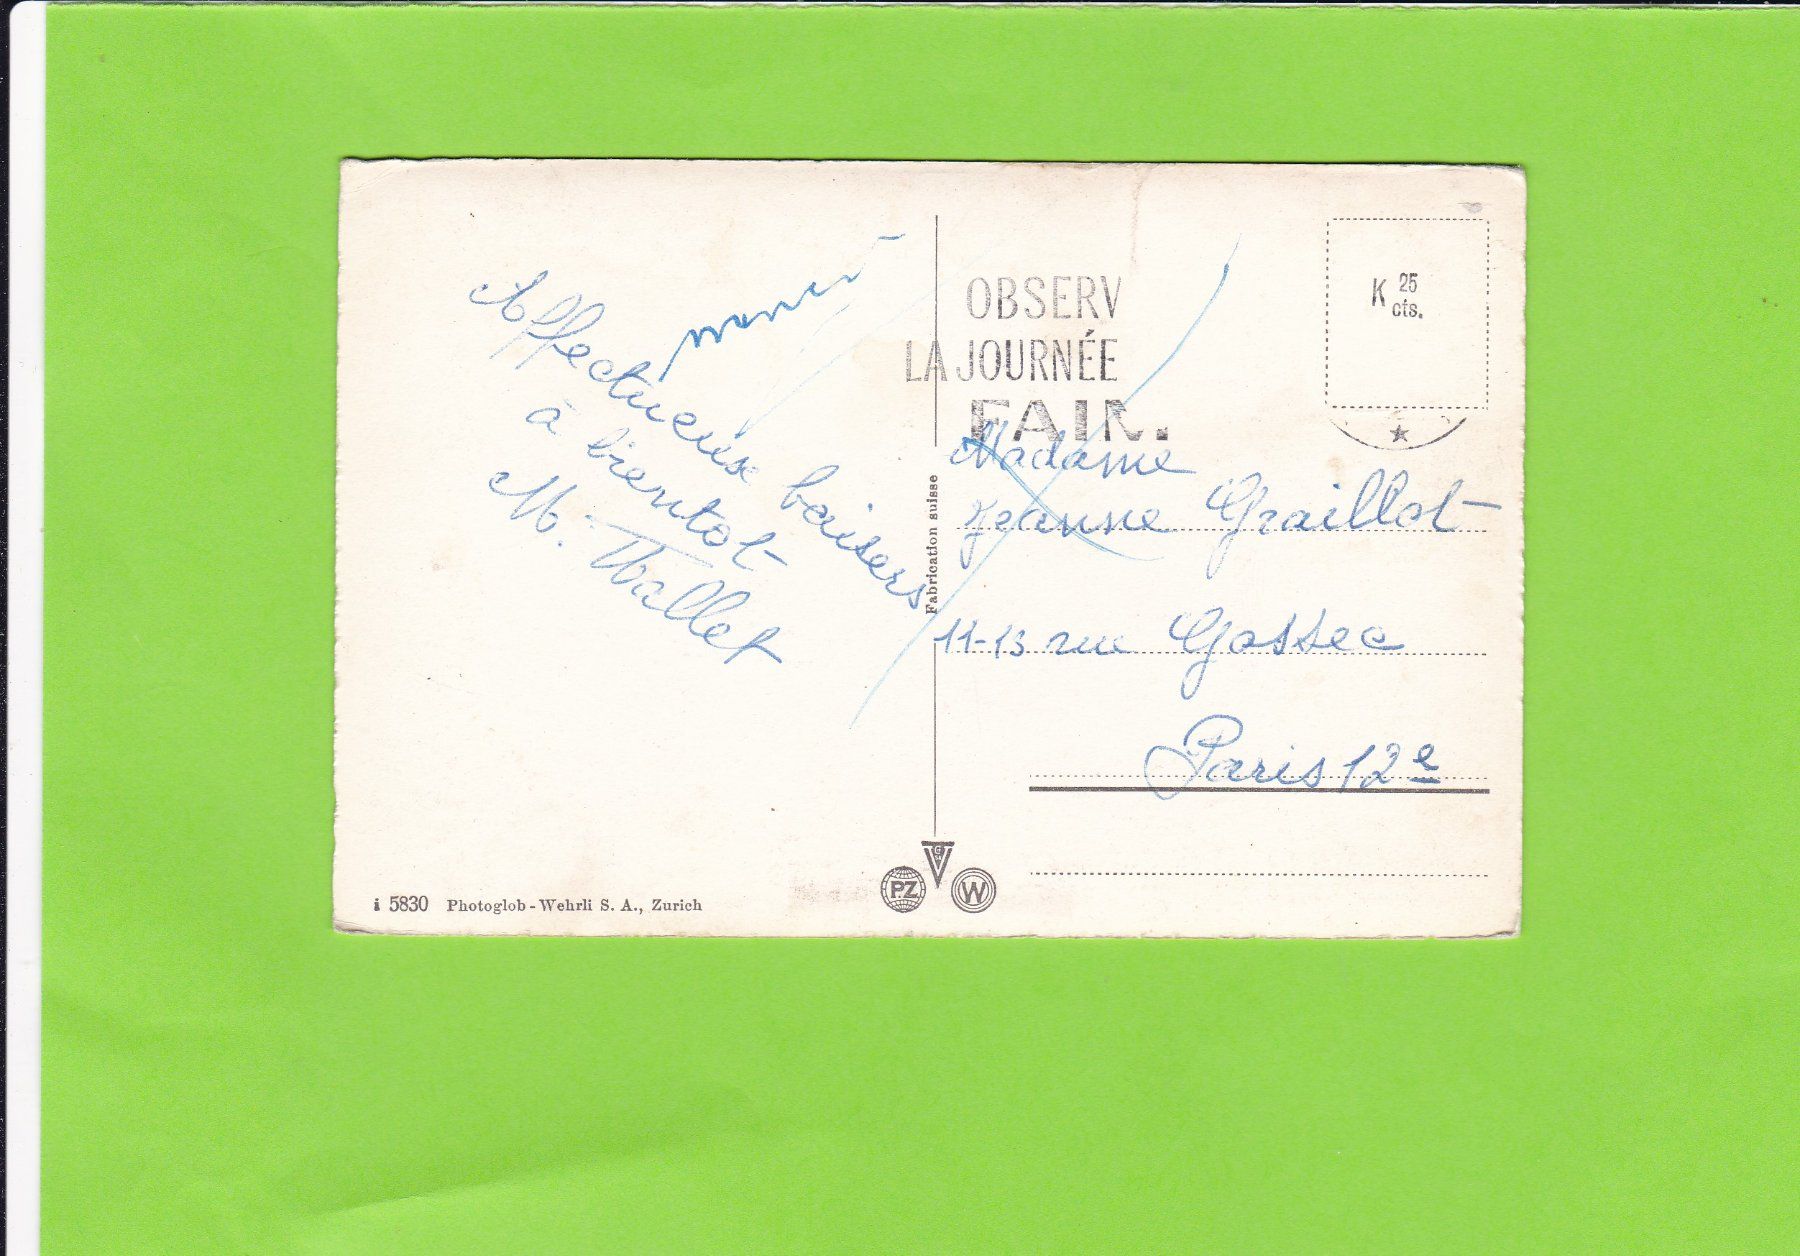 Affectueuse baisers
à bientot
M. Thallet
OBSERV
LA JOURNÉE
FAIM.
K 25
cts.
Madame
Jeanne Graillot
11-13 rue Gossec
Paris 12e
Fabrication suisse
i 5830 Photoglob-Wehrli S. A., Zurich
PZ
W